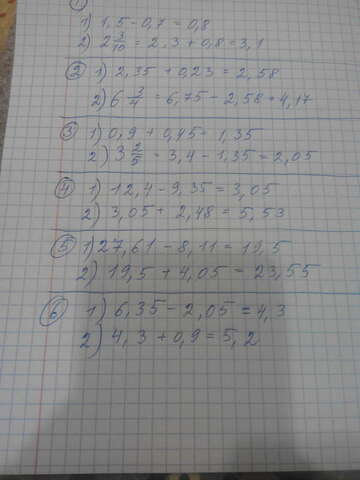 ①
1) 1,5 - 0,7 = 0,8
2) 2 3/10 = 2,3 + 0,8 = 3,1
② 1) 2,35 + 0,23 = 2,58
2) 6 3/4 = 6,75 - 2,58 = 4,17
③ 1) 0,9 + 0,45 = 1,35
2) 3 2/5 = 3,4 - 1,35 = 2,05
④ 1) 12,4 - 9,35 = 3,05
2) 3,05 + 2,48 = 5,53
⑤ 1) 27,61 - 8,11 = 19,5
2) 19,5 + 4,05 = 23,55
⑥ 1) 6,35 - 2,05 = 4,3
2) 4,3 + 0,9 = 5,2